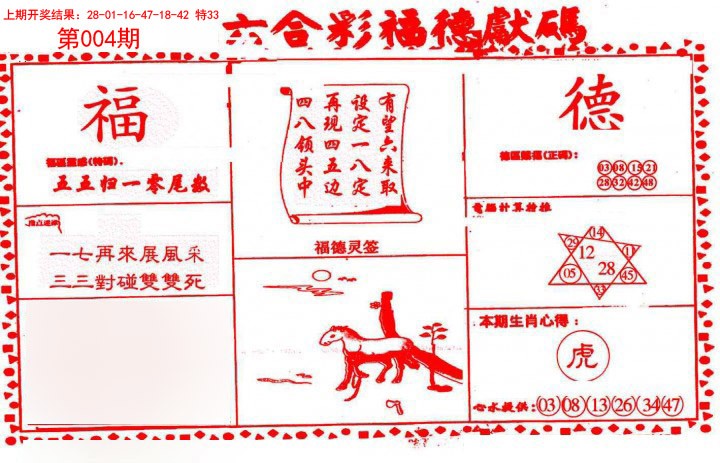 上期开奖结果：28-01-16-47-18-42 特33
第004期
六合彩福德獻碼
福
五五归一零尾数
一七再來展風采
三三對碰雙雙死
有望六来取
设定一八定
再现四五边
四八领头中
福德灵签
德
03 08 15 21
28 32 42 48
29 04 11
12
28
05 45
33
本期生肖心得：
虎
心水提供：03 08 13 26 34 47